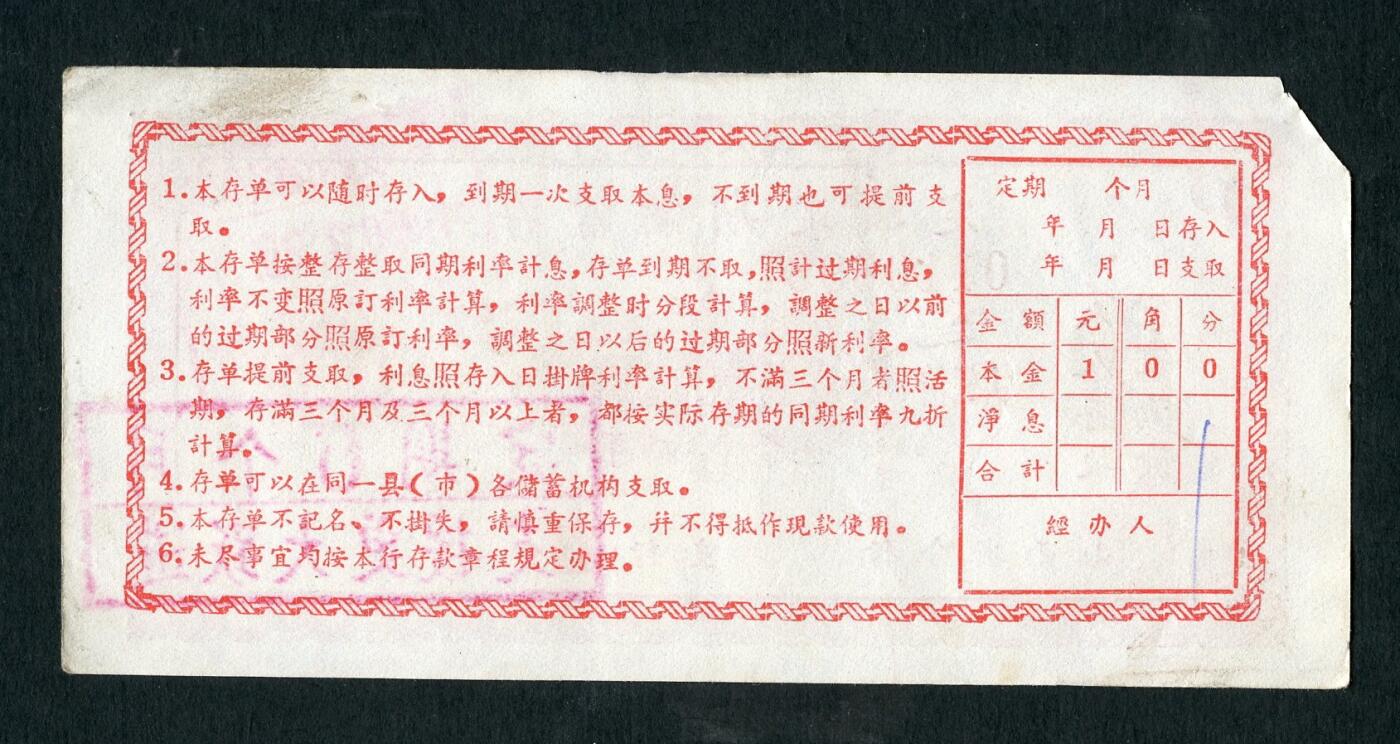 1.本存单可以随时存入，到期一次支取本息，不到期也可提前支
取。
2.本存单按整存整取同期利率計息，存单到期不取，照計过期利息，
利率不变照原訂利率計算，利率調整时分段計算，調整之日以前
的过期部分照原訂利率，調整之日以后的过期部分照新利率。
3.存单提前支取，利息照存入日掛牌利率計算，不滿三个月者照活
期，存滿三个月及三个月以上者，都按实际存期的同期利率九折
計算。
4.存单可以在同一县(市)各儲蓄机构支取。
5.本存单不記名、不掛失，請慎重保存，幷不得抵作现款使用。
6.未尽事宜均按本行存款章程規定办理。
定期 个月
年 月 日存入
年 月 日支取
金額 元 角 分
本金 1 0 0
淨息
合計
經办人